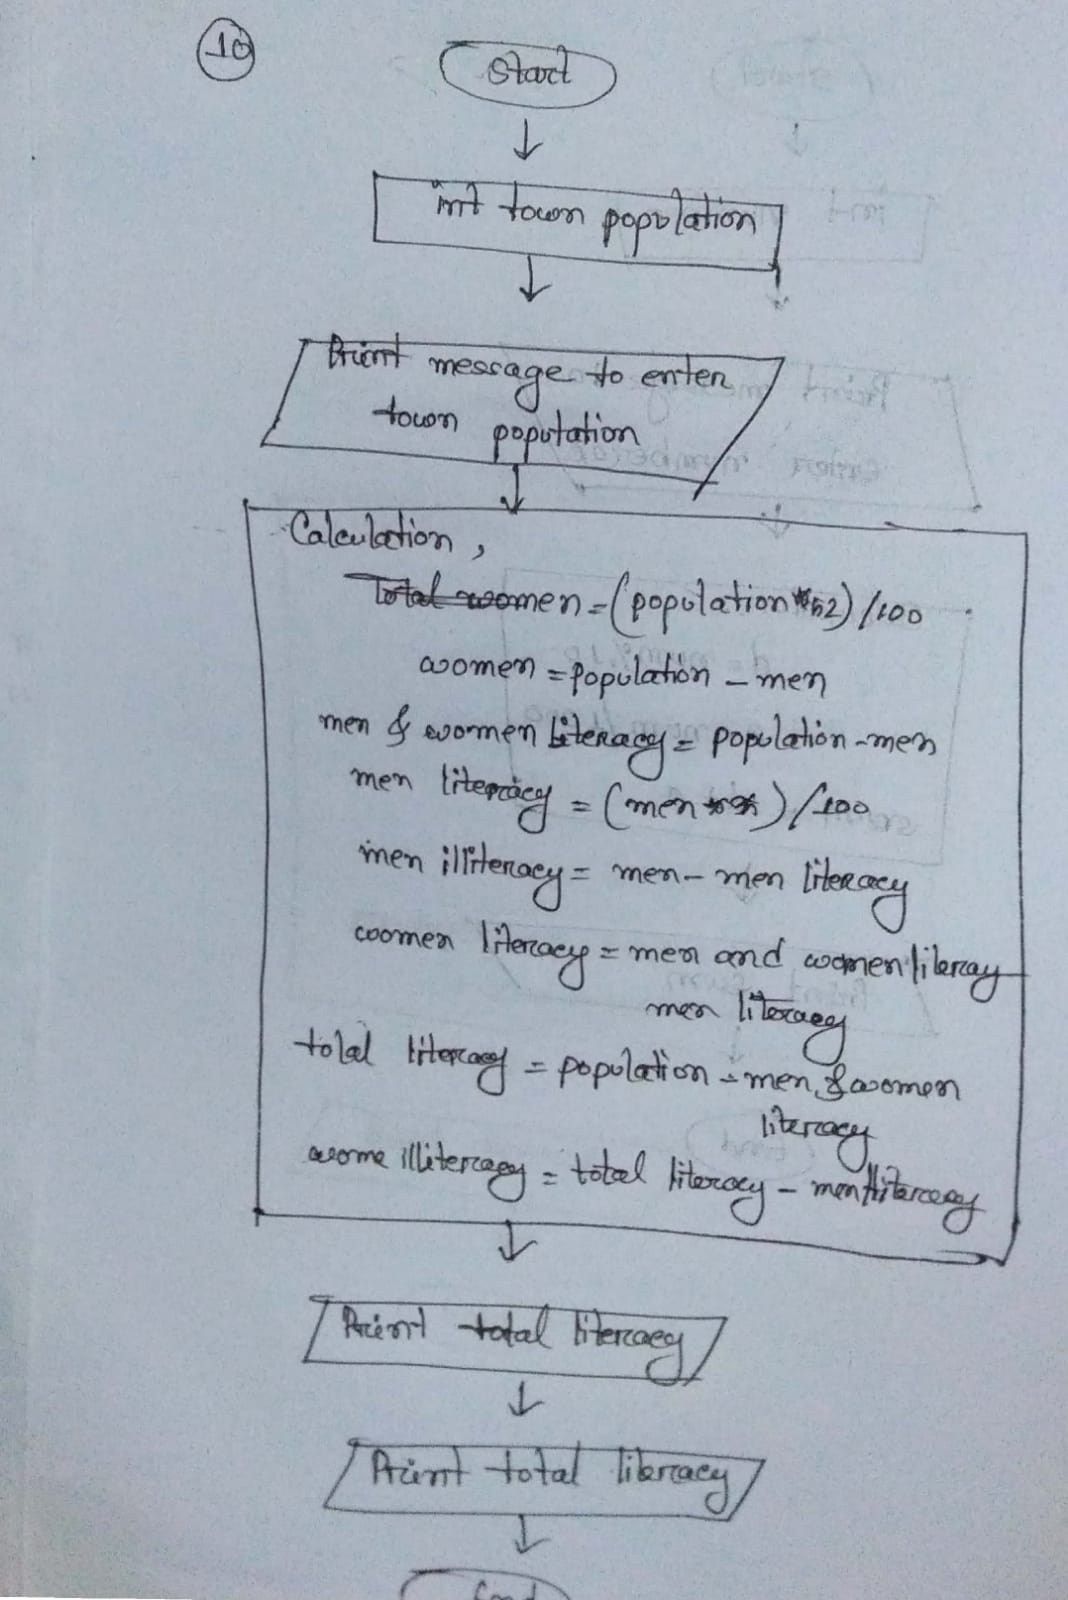 10
Start
int town population
Print message to enter
town population
Calculation,
Total women = (population *52) /100
women = population - men
men & women literacy = population - men
men literacy = (men ) /100
men illiteracy = men - men literacy
women literacy = men and women literay
men literacy
total literacy = population - men & women
literacy
wome illiteracy = total literacy - men literacy
Print total literacy
Print total literacy
End